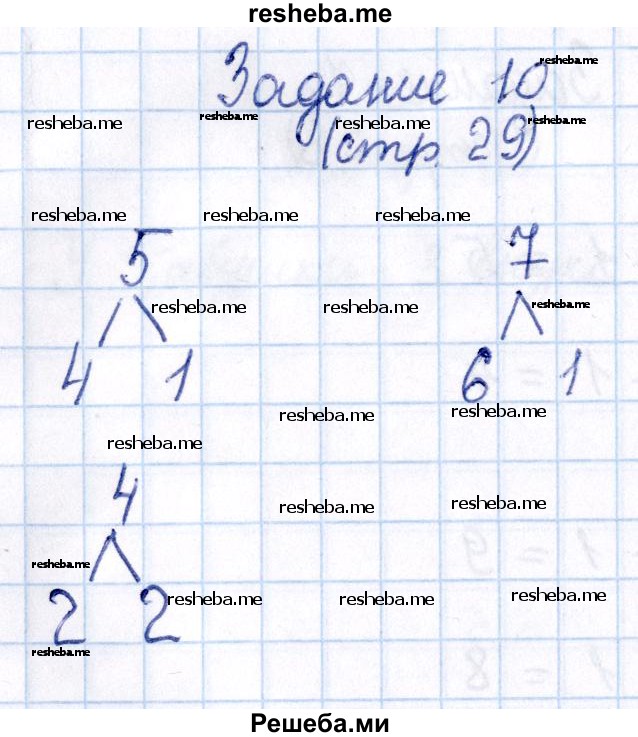 resheba.me
Задание 10
resheba.me
resheba.me
resheba.me
resheba.me
resheba.me
(стр. 29)
resheba.me
resheba.me
resheba.me
5
7
resheba.me
resheba.me
resheba.me
4 1
6 1
resheba.me
resheba.me
resheba.me
4
resheba.me
resheba.me
resheba.me
2 2
resheba.me
resheba.me
resheba.me
resheba.me
Решеба.ми